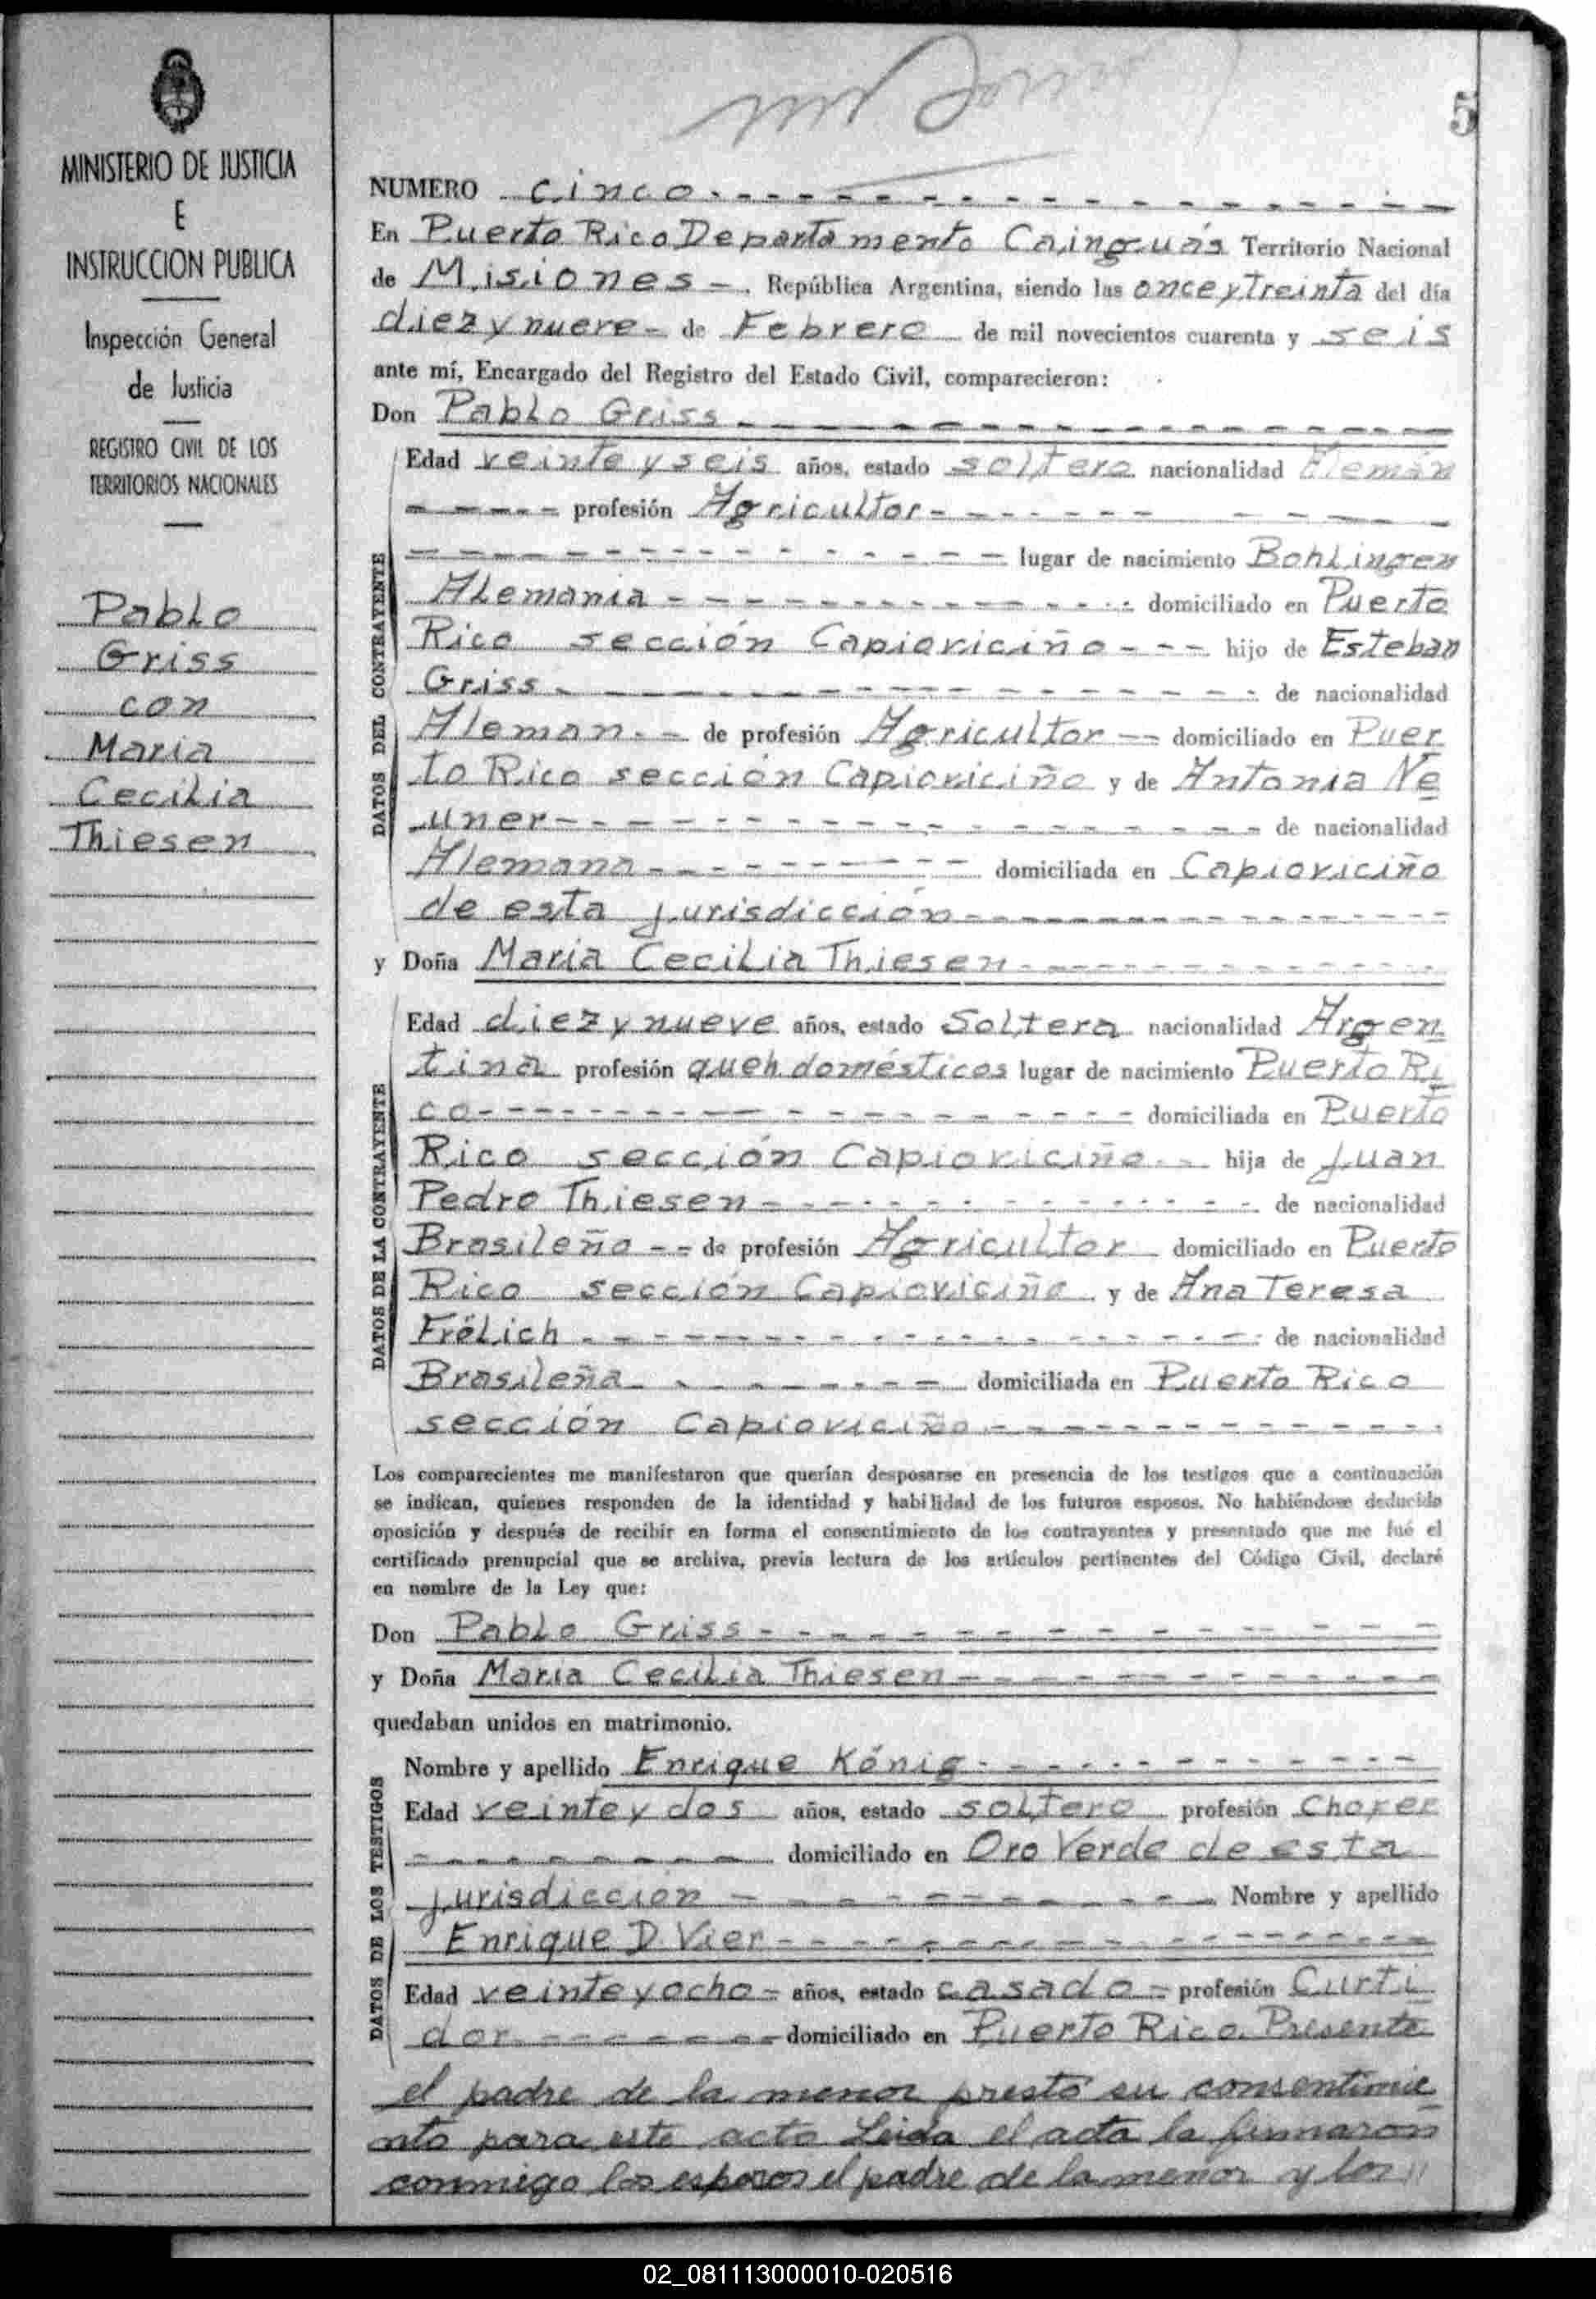 5
MINISTERIO DE JUSTICIA
E
INSTRUCCION PUBLICA
Inspección General
de Justicia
REGISTRO CIVIL DE LOS
TERRITORIOS NACIONALES
Pablo
Griss
con
Maria
Cecilia
Thiesen
NUMERO cinco
En Puerto Rico Departamento Cainguás Territorio Nacional
de Misiones República Argentina, siendo las once y treinta del día
diez y nueve de Febrero de mil novecientos cuarenta y seis
ante mí, Encargado del Registro del Estado Civil, comparecieron:
Don Pablo Griss
DATOS DEL CONTRAYENTE
Edad veinte y seis años, estado soltero nacionalidad Alemán
profesión Agricultor
lugar de nacimiento Bohlingen
Alemania domiciliado en Puerto
Rico sección Capioviciño hijo de Esteban
Griss de nacionalidad
Aleman de profesión Agricultor domiciliado en Puer
to Rico sección Capioviciño y de Antonia Ne
uner de nacionalidad
Alemana domiciliada en Capioviciño
de esta jurisdicción
y Doña Maria Cecilia Thiesen
DATOS DE LA CONTRAYENTE
Edad diez y nueve años, estado Soltera nacionalidad Argen
tina profesión queh. domésticos lugar de nacimiento Puerto Ri
co domiciliada en Puerto
Rico sección Capioviciño hija de Juan
Pedro Thiesen de nacionalidad
Brasileño de profesión Agricultor domiciliado en Puerto
Rico sección Capioviciño y de Ana Teresa
Frölich de nacionalidad
Brasileña domiciliada en Puerto Rico
sección Capioviciño
Los comparecientes me manifestaron que querían desposarse en presencia de los testigos que a continuación
se indican, quienes responden de la identidad y habilidad de los futuros esposos. No habiéndose deducido
oposición y después de recibir en forma el consentimiento de los contrayentes y presentado que me fué el
certificado prenupcial que se archiva, previa lectura de los artículos pertinentes del Código Civil, declaré
en nombre de la Ley que:
Don Pablo Griss
y Doña Maria Cecilia Thiesen
quedaban unidos en matrimonio.
DATOS DE LOS TESTIGOS
Nombre y apellido Enrique König
Edad veinte y dos años, estado soltero profesión Chofer
domiciliado en Oro Verde de esta
jurisdicción Nombre y apellido
Enrique D. Vier
Edad veinte y ocho años, estado casado profesión Curti
dor domiciliado en Puerto Rico. Presente
el padre de la menor prestó su consentimie
nto para este acto Leida el acta la firmaron
conmigo los esposos el padre de la menor y los
02_081113000010-020516